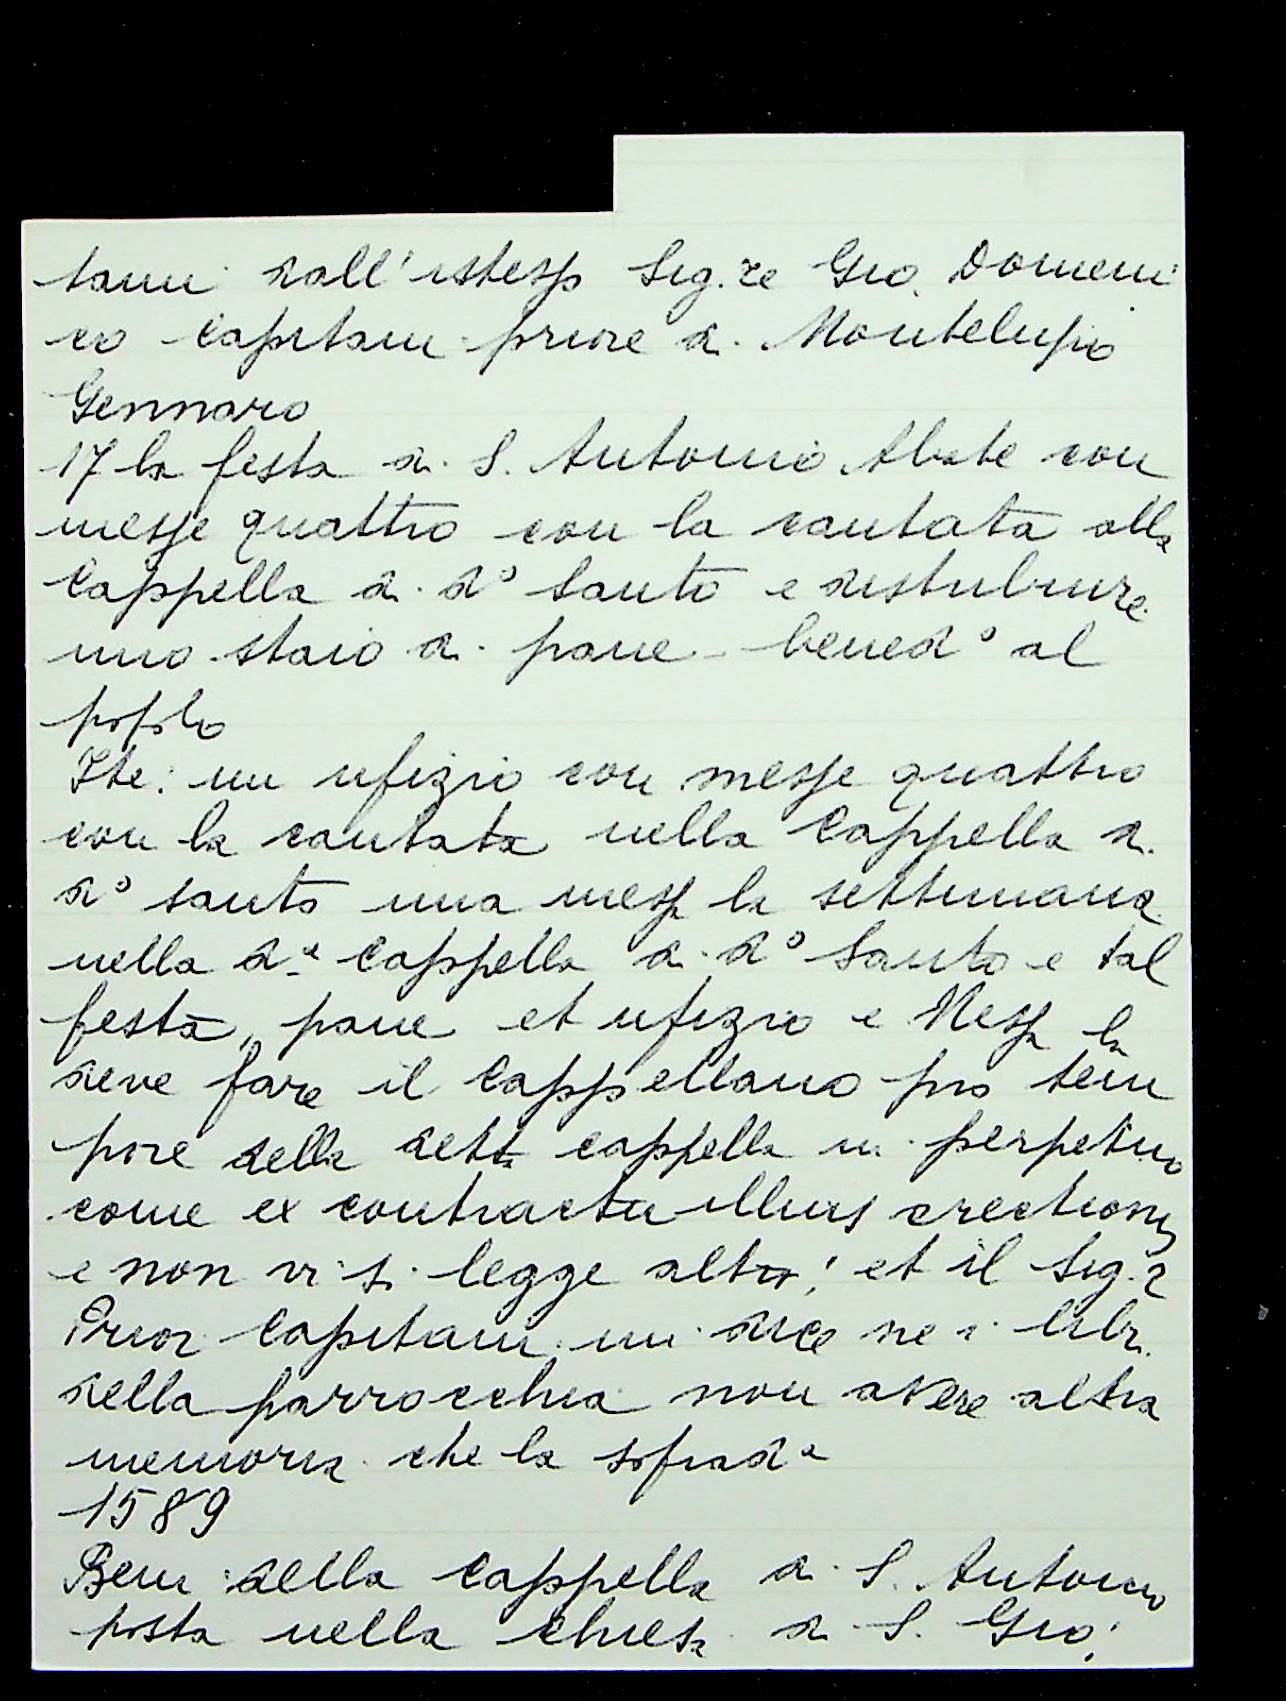 tani dall'istesso Sig.re Gio. Domeni
co Capitani priore di Montelupo
Gennaro
17 la festa di S. Antonio Abate con
messe quattro con la cantata alla
Cappella di d° Santo e distribuire
uno staio di pane bened° al
popolo
Ite: un ufizio con messe quattro
con la cantata nella Cappella di
d° santo una messa la settimana
nella d.a Cappella di d° Santo e tal
festa, pane et ufizio e Messa la
deve fare il Cappellano pro tem
pore della detta cappella in perpetuo
come ex contractu illius erectionis
e non vi si legge altro; et il Sig.r
Prior Capitani mi dice ne i libri
della parrocchia non avere altra
memoria che la soprad.a
1589
Beni della Cappella di S. Antonio
posta nella chiesa di S. Gio: